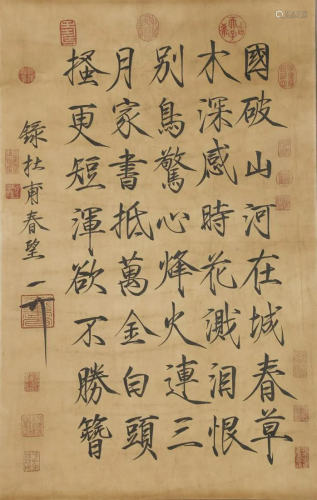 國破山河在城春草
木深感時花濺泪恨
別鳥驚心烽火連三
月家書抵萬金白頭
搔更短渾欲不勝簪
錄杜甫春望